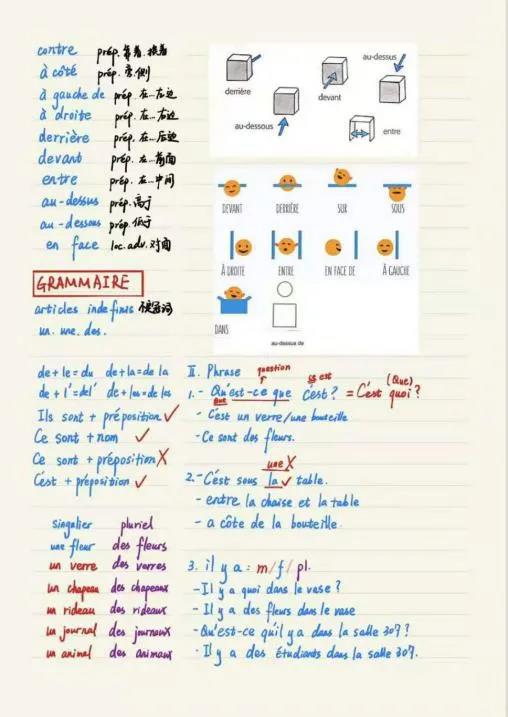 contre prép. 靠着.接着
à côté prép. 旁.侧
à gauche de prép. 在...左边
à droite prép. 在...右边
derrière prép. 在...后边
devant prép. 在...前面
entre prép. 在...中间
au-dessus prép. 高于
au-dessous prép. 低于
en face loc.adv. 对面
derrière
devant
au-dessus
au-dessous
entre
DEVANT DERRIÈRE SUR SOUS
À DROITE ENTRE EN FACE DE À GAUCHE
DANS
au-dessus de
GRAMMAIRE
articles indefinis
un. une. des.
de+le=du de+la=de la
de+l'=del' de+les=de les
Ils sont + préposition ✓
Ce sont + nom ✓
Ce sont + préposition X
C'est + préposition ✓
singulier pluriel
une fleur des fleurs
un verre des verres
un chapeau des chapeaux
un rideau des rideaux
un journal des journaux
un animal des animaux
II. Phrase question
1.- Qu'est-ce que c'est? = C'est quoi? (Que)
que
- C'est un verre/une bouteille
- Ce sont des fleurs.
une X
2.- C'est sous la ✓ table.
- entre la chaise et la table
- a côte de la bouteille.
3. il y a: m/f/pl.
- Il y a quoi dans le vase?
- Il y a des fleurs dans le vase
- Qu'est-ce qu'il y a dans la salle 307?
- Il y a des étudiants dans la salle 307.